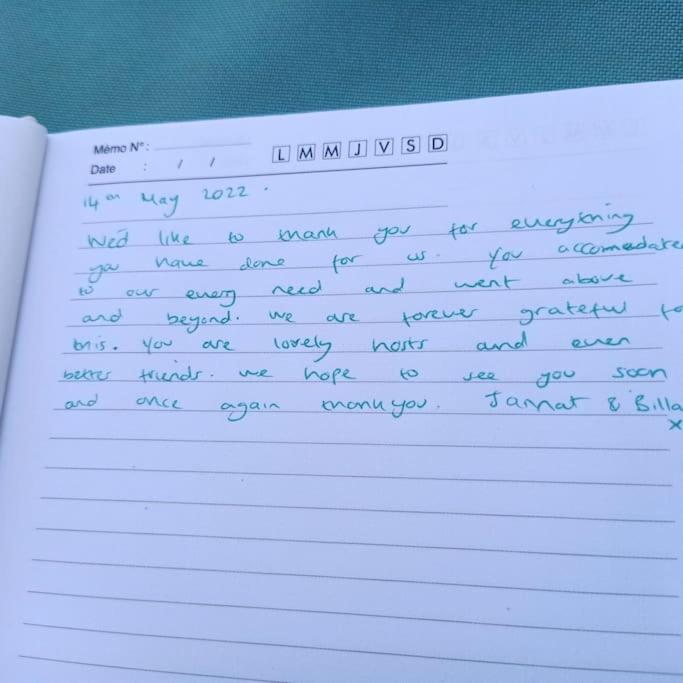 Mémo N° :
Date : / /
L M M J V S D
14th May 2022.
Wed like to thank you for everything
you have done for us. You accomedate
to our every need and went above
and beyond. We are forever grateful fo
this. You are lovely hosts and even
better friends. We hope to see you soon
and once again thankyou. Jannat & Billa
x